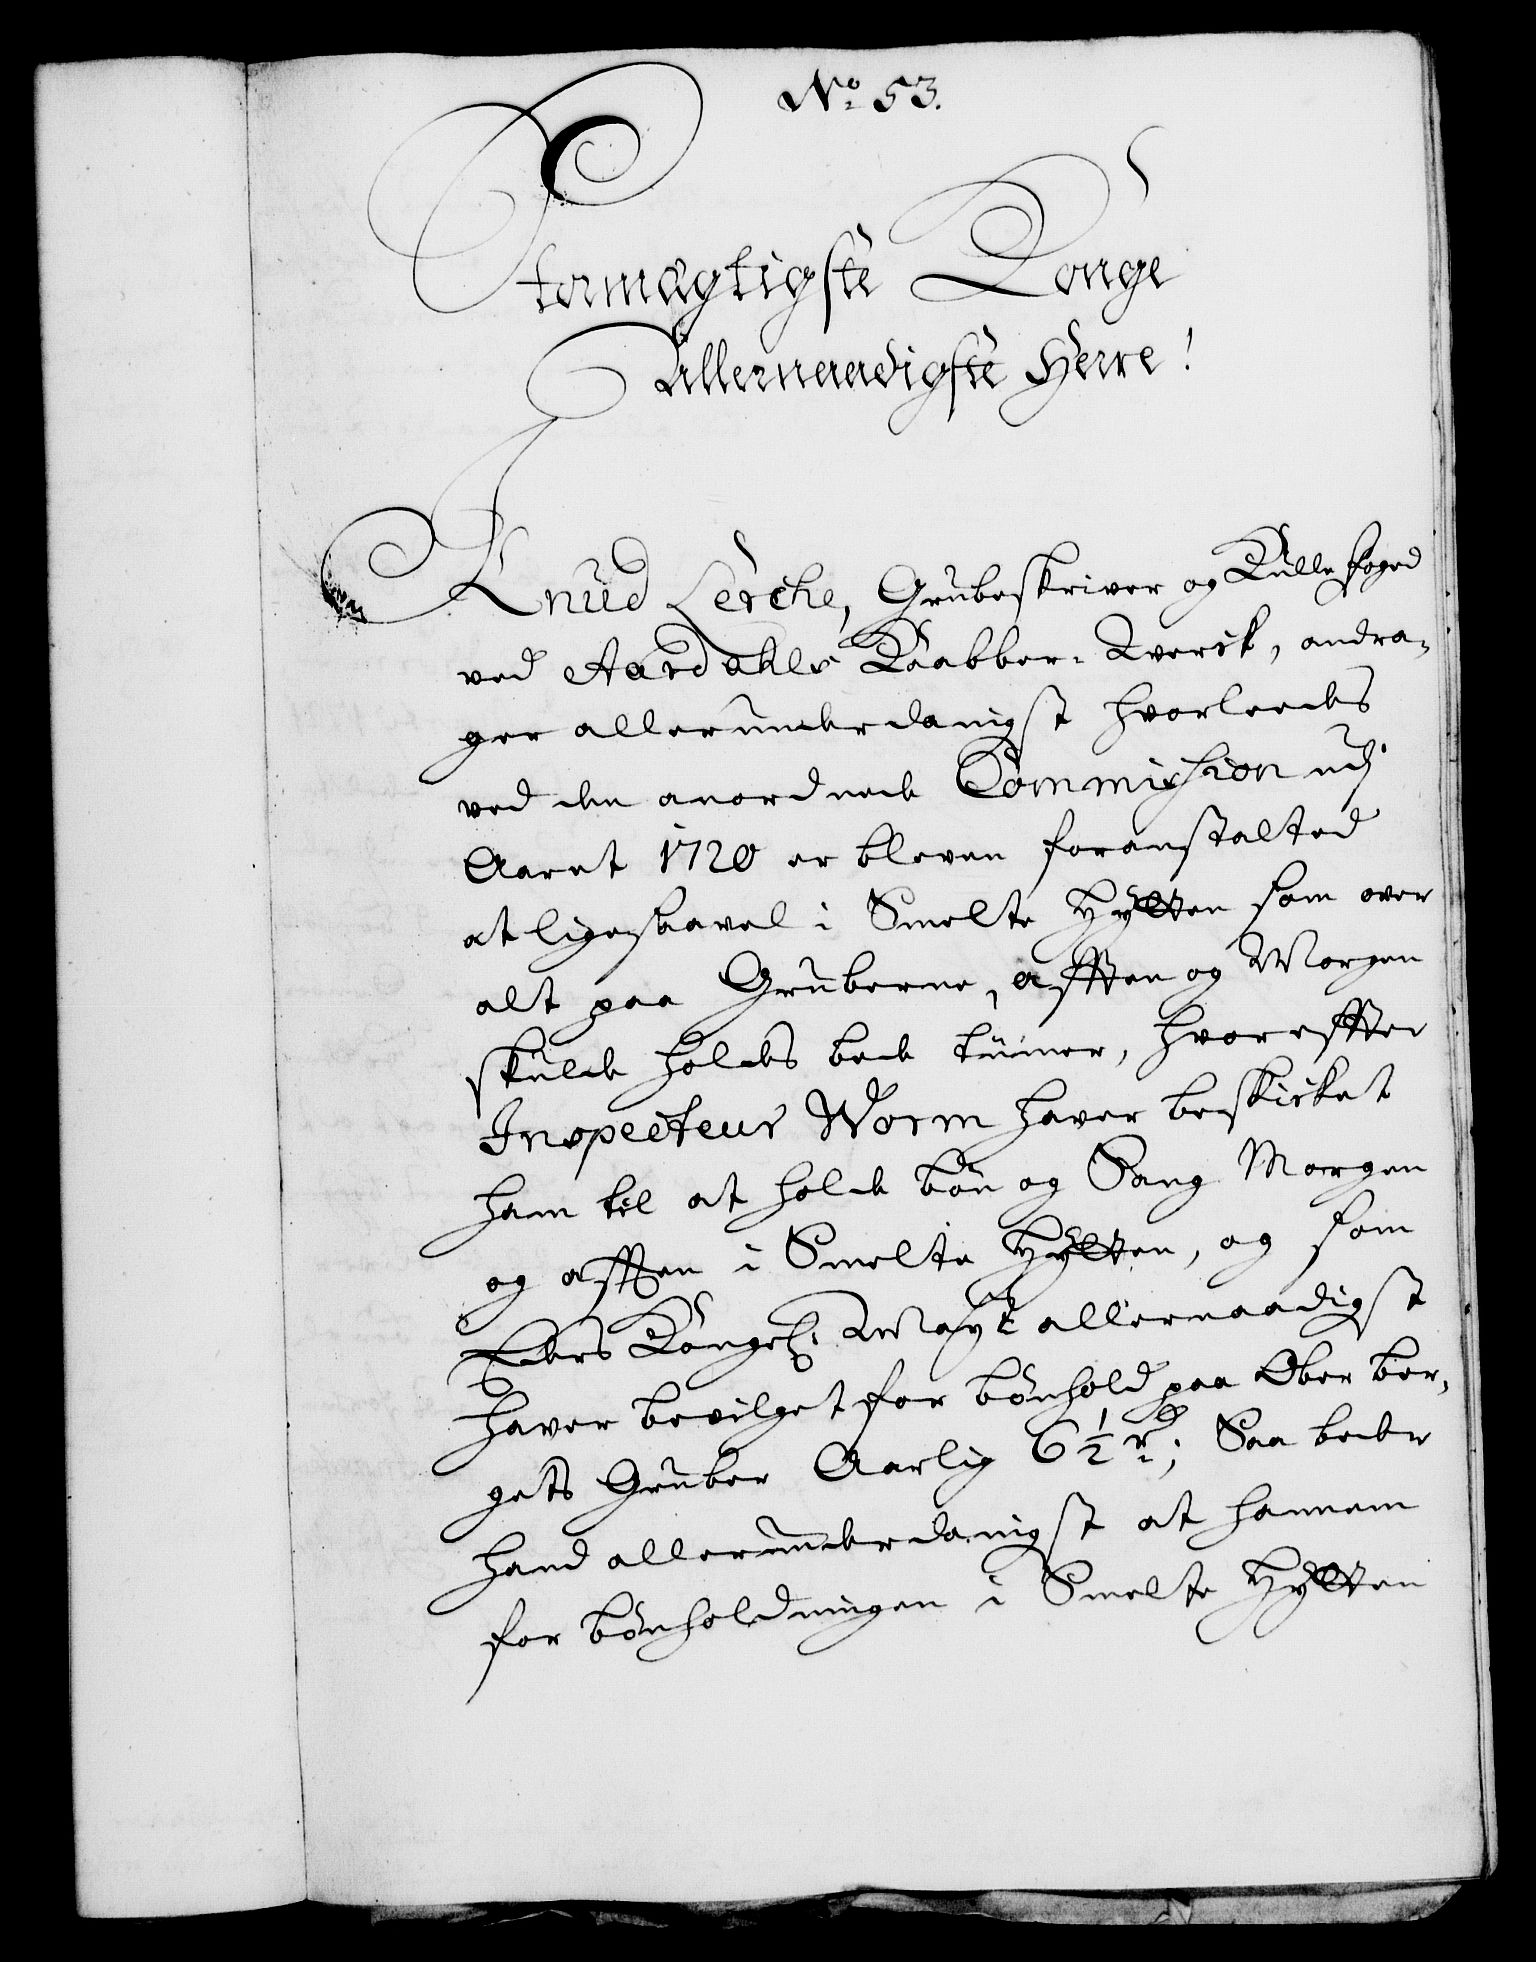 No 53.
Stormægtigste Konge
Allernaadigste Herre!
Knud Lerche, Grubeskriver og Kulle foged
ved Aardahls Kaabber-Verck, andra-
ger allerunderdanigst hvorleedes
ved den anordnede Commishion udj
Aaret 1720 er bleven foranstalted
at ligesaavel i Smelte Hÿtten som over
alt paa Gruberne, afften og Morgen
skulde holdes bede tiimer, hvoreffter
Inspecteur Worm haver beskicket
ham til at holde bön og Sang Morgen
og afften i Smelte Hÿtten, og som
Eders Kongel: Mayt allernaadigst
haver bevilget for bönhold paa Ober ber-
gets Gruber Aarlig 6½ rd; Saa beder
hand allerunderdanigst at hannem
for bönholdningen i Smelte Hÿtten